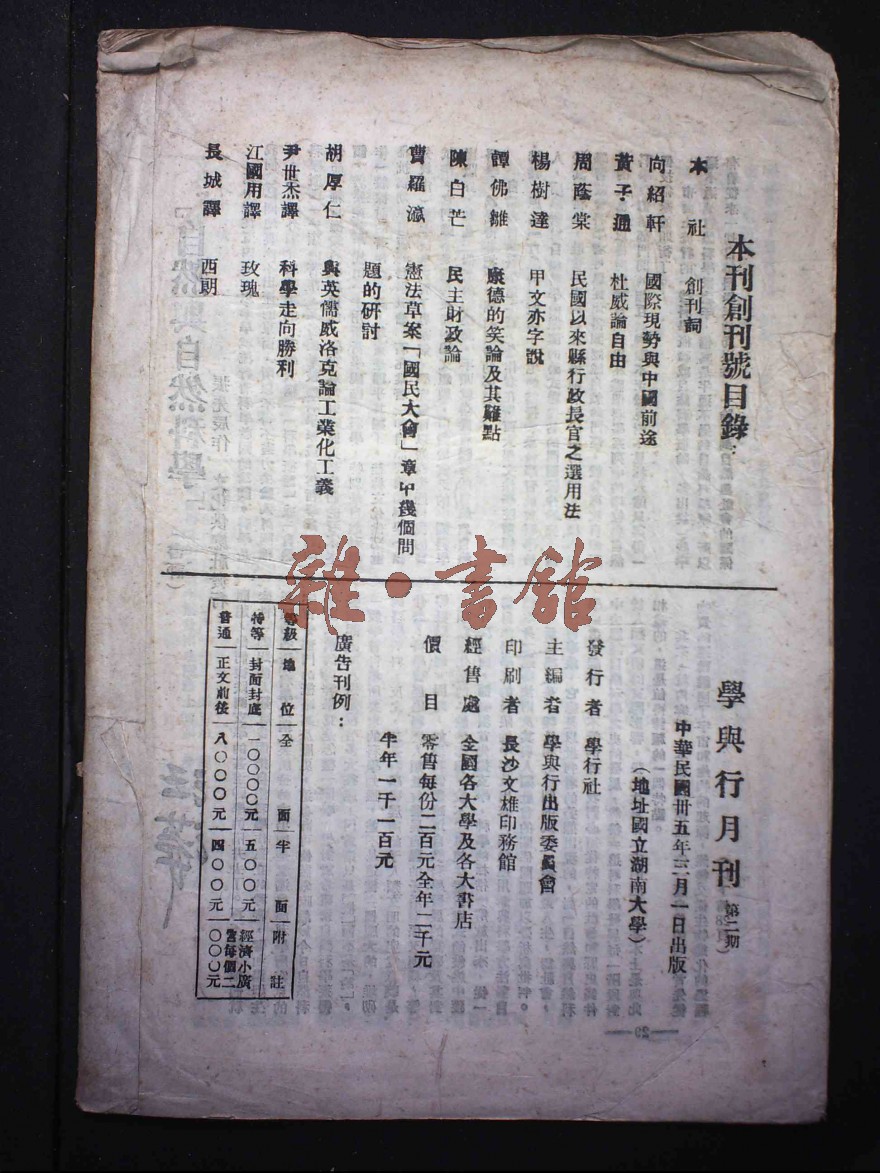 本刊創刊號目錄：
本社 創刊詞
向紹軒 國際現勢與中國前途
黃子通 杜威論自由
周蔭棠 民國以來縣行政長官之選用法
楊樹達 甲文亦字說
譚佛雛 康德的笑論及其難點
陳白芒 民主財政論
曹羅瀛 憲法草案「國民大會」章中幾個問
題的研討
胡厚仁 與英儒威洛克論工業化工義
尹世杰譯 科學走向勝利
江國用譯 玫瑰
長城譯 西朗
雜·書館
學與行月刊 第二期
中華民國卅五年三月一日出版
（地址國立湖南大學）
發行者 學行社
主編者 學與行出版委員會
印刷者 長沙文雄印務館
經售處 全國各大學及各大書店
價目 零售每份二百元全年二千元
半年一千一百元
廣告刊例：
等級 地位 全面 半面 附註
特等 封面封底 一〇〇〇〇元 五〇〇〇元 經濟小廣
普通 正文前後 八〇〇〇元 四〇〇〇元 告每個二
〇〇〇元